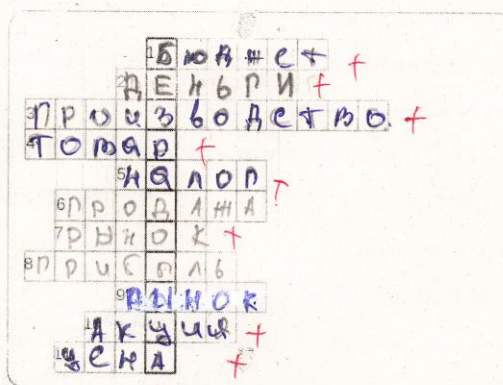 1 Бюджет +
2 ДЕНЬГИ +
3 Производство. +
4 Товар +
5 налог +
6 ПРОДАЖА
7 РЫНОК +
8 ПРИБЫЛЬ
9 РЫНОК
Акция +
Цена +